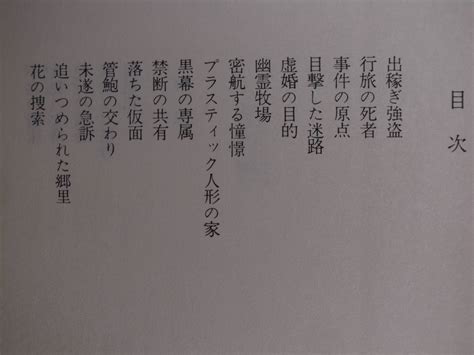 目次
出稼ぎ強盗
行旅の死者
事件の原点
目撃した迷路
虚婚の目的
幽霊牧場
密航する憧憬
プラスティック人形の家
黒幕の専属
禁断の共有
落ちた仮面
管鮑の交わり
未遂の急訴
追いつめられた郷里
花の捜索